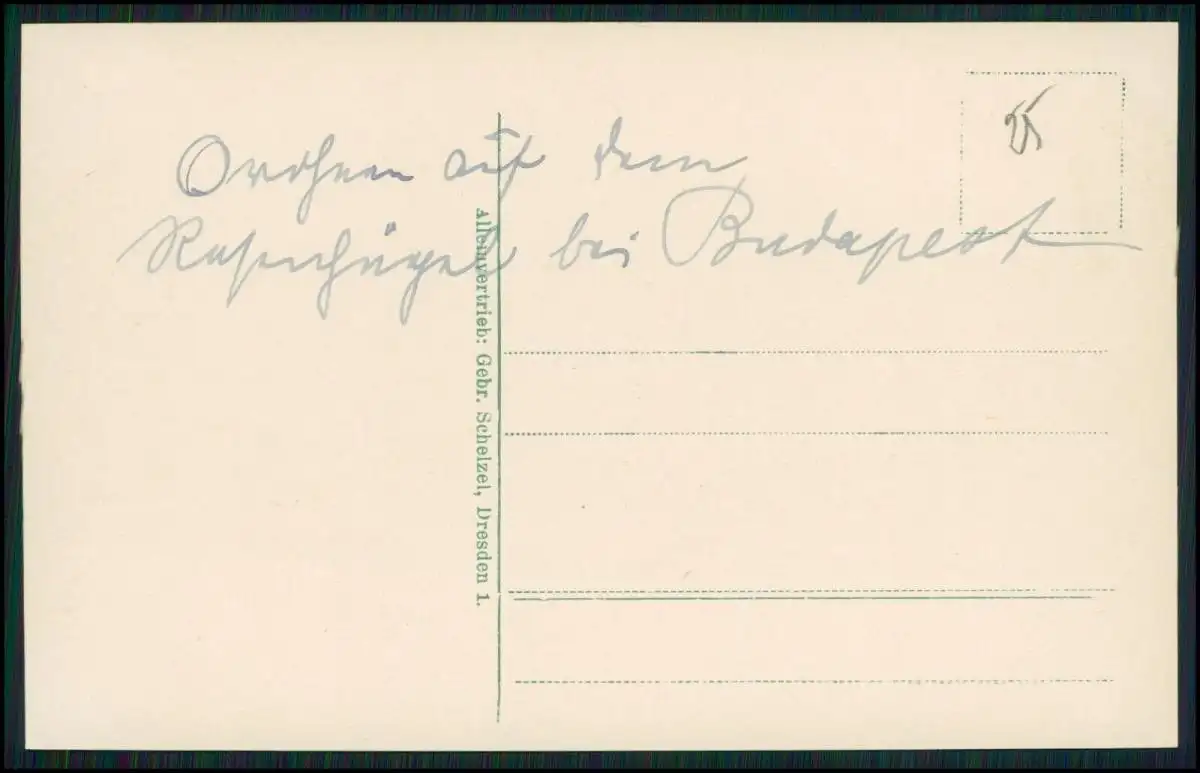 auf dem
Rosenhügel bei Budapest
Alleinvertrieb: Gebr. Schelzel, Dresden 1.